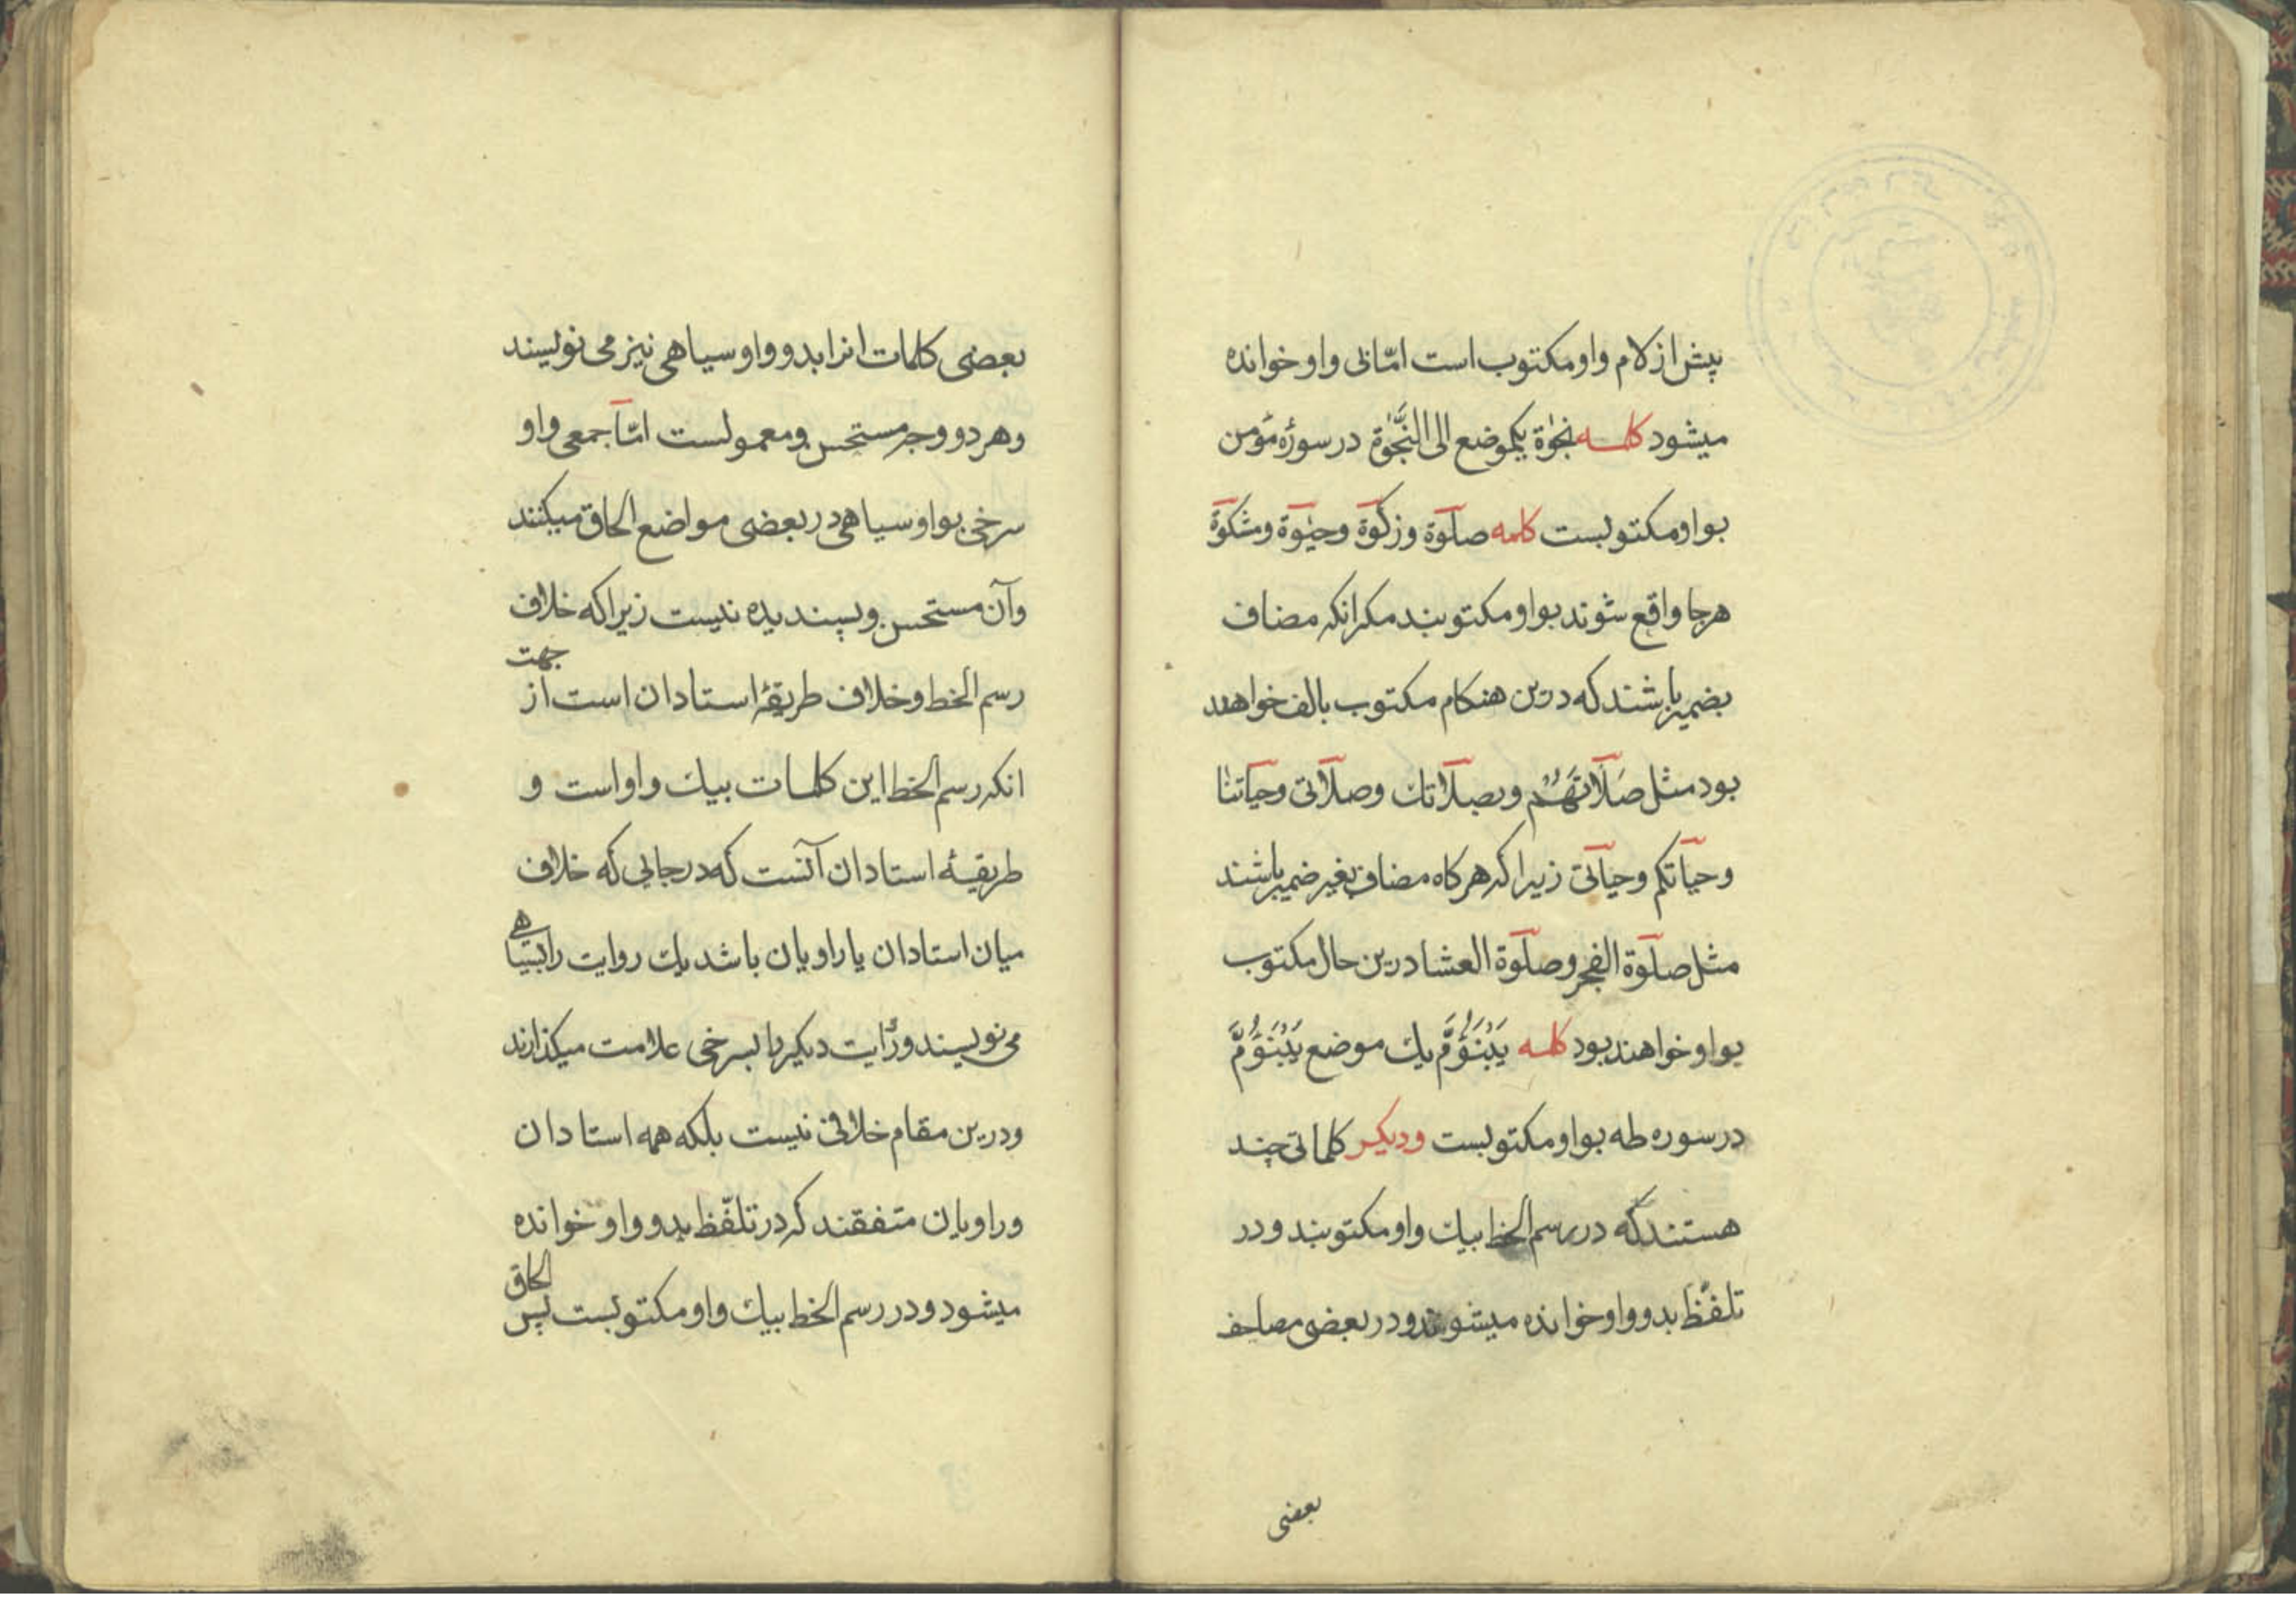 پیش از لام واو مکتوب است امّا بی واو خوانده
میشود کلمه نجوٰة یکموضع الی النَّجٰوة در سورهٔ مؤمن
بواو مکتوبست کلمه صلوٓة وزکوٓة وحیٰوٓة ومشکوٓة
هرجا واقع شوند بواو مکتوبند مکر انکه مضاف
بضمیر باشند که درین هنکام مکتوب بالف خواهند
بود مثل صَلَٓاتَهُمْ وبصلآتك وصلآتی وحیآتنا
وحیآتکم وحیآتی زیرا که هرکاه مضاف بغیر ضمیر باشند
مثل صلوٓة الفجر وصلوٓة العشا درین حال مکتوب
بواو خواهند بود کلمه یَبْنَؤُمَّ یك موضع یَبْنَؤُمَّ
در سوره طه بواو مکتوبست ودیکر کلماتی چند
هستند که در رسم الخط بیك واو مکتوبند ودر
تلفّظ بدو واو خوانده میشوند ودر بعضی مصاحف
بعضی
بعضی کلمات انرا بدو واو سیاهی نیز می نویسند
وهر دو وجه مستحسن ومعمولست امّآ جمعی واو
سرخی بواو سیاهی در بعضی مواضع الحاق میکنند
وآن مستحسن وپسندیده نیست زیرا که خلاف
رسم الخط وخلاف طریقهٔ استادان است از جهت
انکه رسم الخط این کلمات بیك واو است و
طریقهٔ استادان آنست که در جایی که خلاف
میان استادان یا راویان باشد یك روایت را بسیاهی
می نویسند وروایت دیکر را بسرخی علامت میکذارند
ودرین مقام خلافی نیست بلکه همه استادان
وراویان متفقند که در تلفّظ بدو واو خوانده
میشود ودر رسم الخط بیك واو مکتوبست پس الحاق